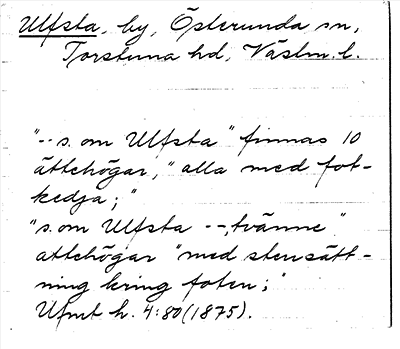 Ulfsta, by, Österunda sn,
Torstuna hd, Västm. l.
"-- s. om Ulfsta" finnas 10
ättehögar, "alla med fot-
kedja;"
"s. om Ulfsta --, tvänne"
attehögar "med stensätt-
ning kring foten;"
Ufmt h. 4:80 (1875).